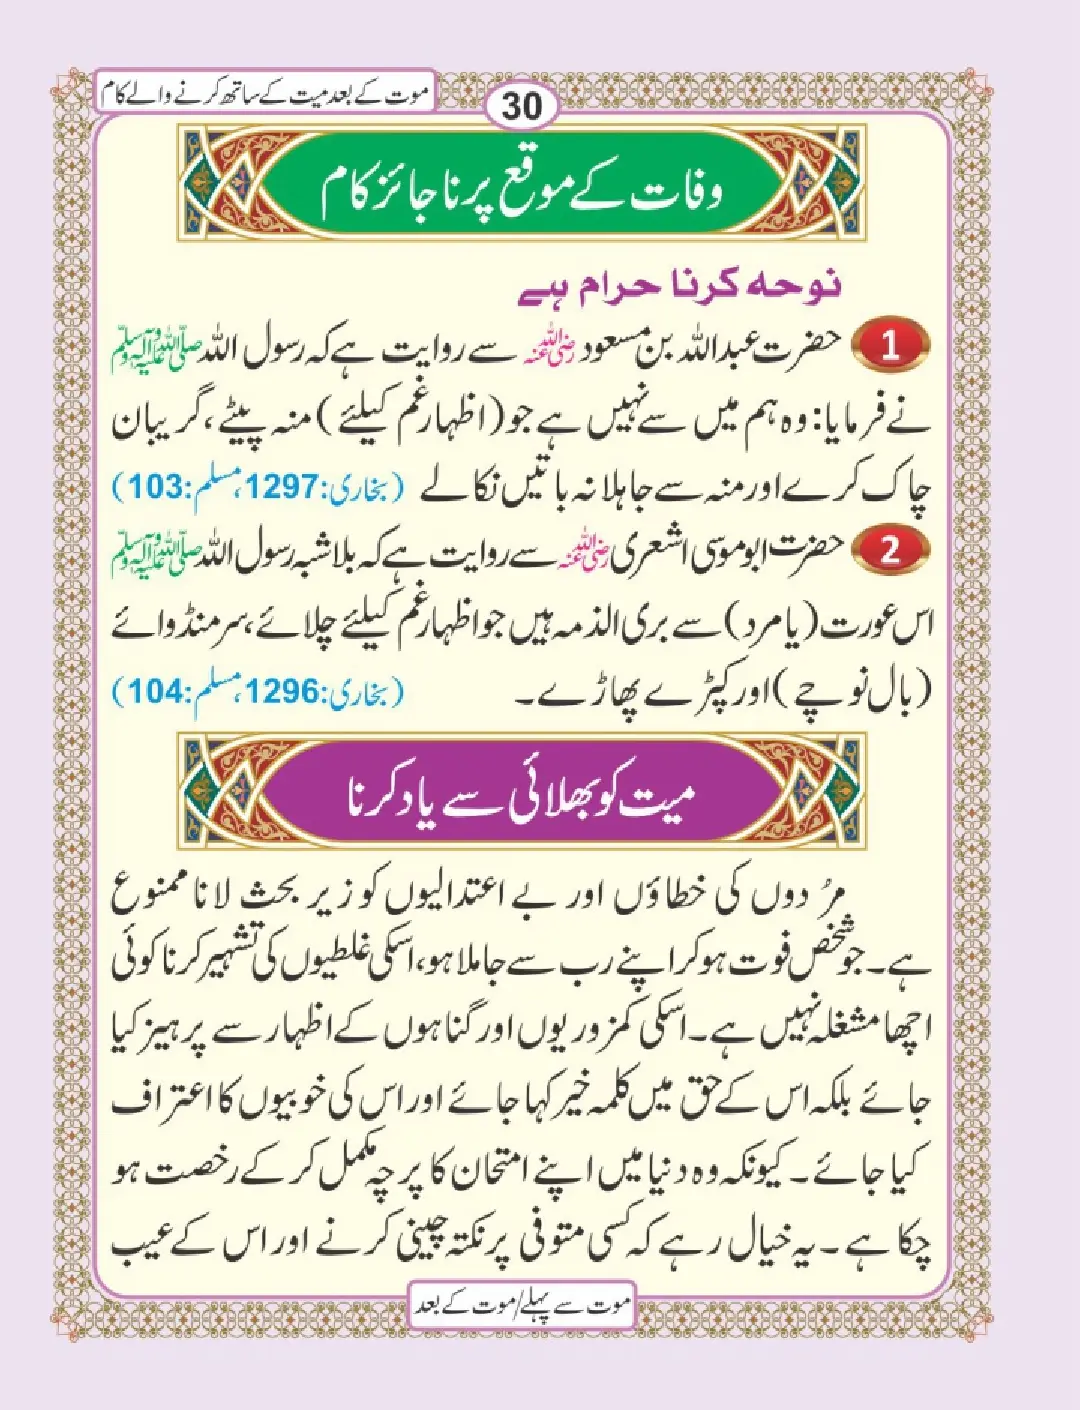 موت کے بعد میت کے ساتھ کرنے والے کام
30
وفات کے موقع پر ناجائز کام
نوحہ کرنا حرام ہے
1 حضرت عبداللہ بن مسعود رضی اللہ عنہ سے روایت ہے کہ رسول اللہ صلی اللہ علیہ وآلہ وسلم
نے فرمایا: وہ ہم میں سے نہیں ہے جو (اظہار غم کیلئے) منہ پیٹے، گریبان
چاک کرے اور منہ سے جاہلانہ باتیں نکالے (بخاری:1297، مسلم:103)
2 حضرت ابو موسی اشعری رضی اللہ عنہ سے روایت ہے کہ بلاشبہ رسول اللہ صلی اللہ علیہ وآلہ وسلم
اس عورت (یا مرد) سے بری الذمہ ہیں جو اظہار غم کیلئے چلائے، سر منڈوائے
(بال نوچے) اور کپڑے پھاڑے۔ (بخاری:1296، مسلم:104)
میت کو بھلائی سے یاد کرنا
مُردوں کی خطاؤں اور بے اعتدالیوں کو زیر بحث لانا ممنوع
ہے۔ جو شخص فوت ہو کر اپنے رب سے جا ملا ہو، اسکی غلطیوں کی تشہیر کرنا کوئی
اچھا مشغلہ نہیں ہے۔ اسکی کمزوریوں اور گناہوں کے اظہار سے پرہیز کیا
جائے بلکہ اس کے حق میں کلمہ خیر کہا جائے اور اس کی خوبیوں کا اعتراف
کیا جائے۔ کیونکہ وہ دنیا میں اپنے امتحان کا پرچہ مکمل کر کے رخصت ہو
چکا ہے۔ یہ خیال رہے کہ کسی متوفی پر نکتہ چینی کرنے اور اس کے عیب
موت سے پہلے/موت کے بعد